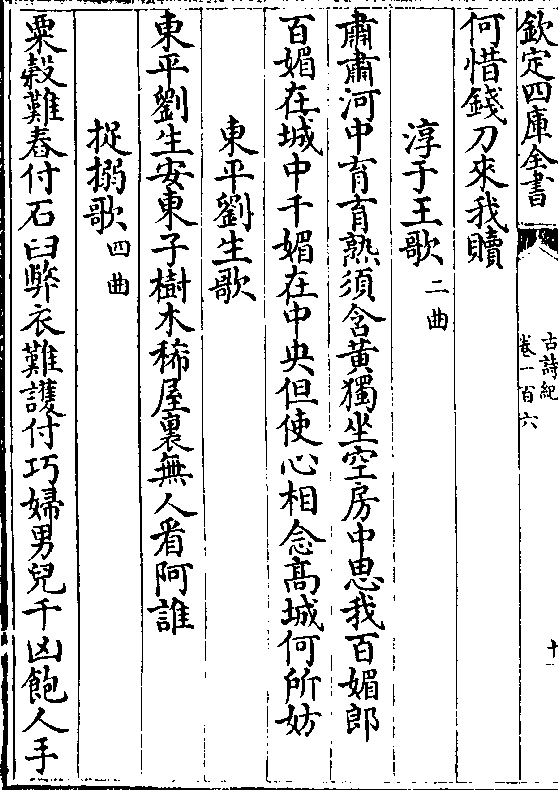 欽定四庫全書
古詩紀
卷一百六
十一
何惜錢刀來我贖
淳于王歌二曲
肅肅河中育育熟須含黃獨坐空房中思我百媚郎
百媚在城中千媚在中央但使心相念高城何所妨
東平劉生歌
東平劉生安東子樹木稀屋裏無人看阿誰
捉搦歌四曲
粟穀難舂付石臼弊衣難護付巧婦男兒千凶飽人手